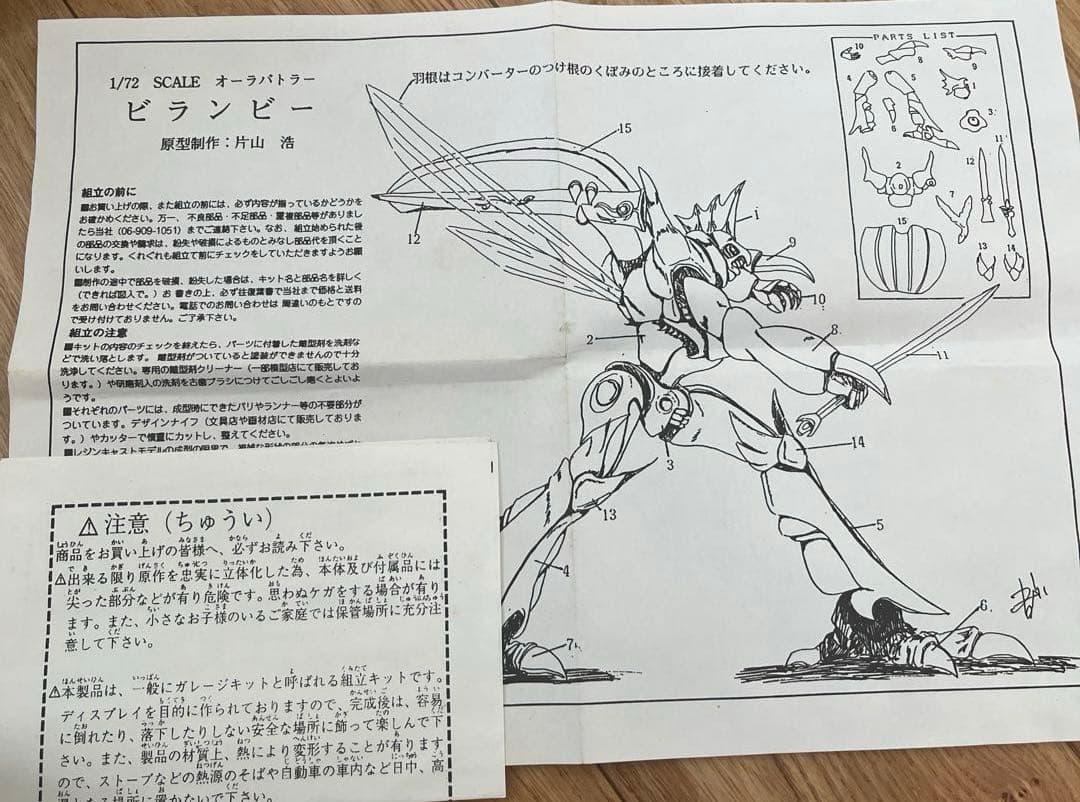 1/72 SCALE オーラバトラー
ビランビー
原型制作：片山 浩
羽根はコンバーターのつけ根のくぼみのところに接着してください。
組立の前に
■お買い上げの際、また組立の前には、必ず内容が揃っているかどうかを
お確かめください。万一、不良部品・不足部品・重複部品等がありまし
たら当社（06-909-1051）までご連絡下さい。なお、組立始められた後
の部品の交換や請求は、紛失や破損によるものとみなし部品代を頂くこと
になります。くれぐれも組立て前にチェックをしていただきますようお願
いします。
■制作の途中で部品を破損、紛失した場合は、キット名と部品名を詳しく
（できれば図入で。）お書きの上、必ず往復葉書で当社まで価格と送料
をお問い合わせください。電話でのお問い合わせは間違いのもとですの
で受け付けておりません。ご了承下さい。
組立の注意
■キットの内容のチェックを終えたら、パーツに付着した離型剤を洗剤な
どで洗い落とします。離型剤がついていると塗装ができませんので十分
洗浄してください。専用の離型剤クリーナー（一部模型店にて販売してお
ります。）や研磨剤入の洗剤を古歯ブラシにつけてごしごし磨くとよいよ
うです。
■それぞれのパーツには、成型時にできたバリやランナー等の不要部分が
ついています。デザインナイフ（文具店や画材店にて販売しておりま
す。）やカッターで慎重にカットし、整えてください。
■レジンキャストモデルの成型の限界で、複雑な形状の部分の
PARTS LIST
10
8
9
4
5
1
6
3
2
12
11
7
15
13
14
15
12
1
9
10
2
8
11
3
14
13
5
4
6
7
⚠注意（ちゅうい）
商品をお買い上げの皆様へ、必ずお読み下さい。
⚠出来る限り原作を忠実に立体化した為、本体及び付属品には
尖った部分などが有り危険です。思わぬケガをする場合が有り
ます。また、小さなお子様のいるご家庭では保管場所に充分注
意して下さい。
⚠本製品は、一般にガレージキットと呼ばれる組立キットです。
ディスプレイを目的に作られておりますので、完成後は、容易
に倒れたり、落下したりしない安全な場所に飾って楽しんで下
さい。また、製品の材質上、熱により変形することが有ります
ので、ストーブなどの熱源のそばや自動車の車内など日中、高
温となる場所に置かないで下さい。